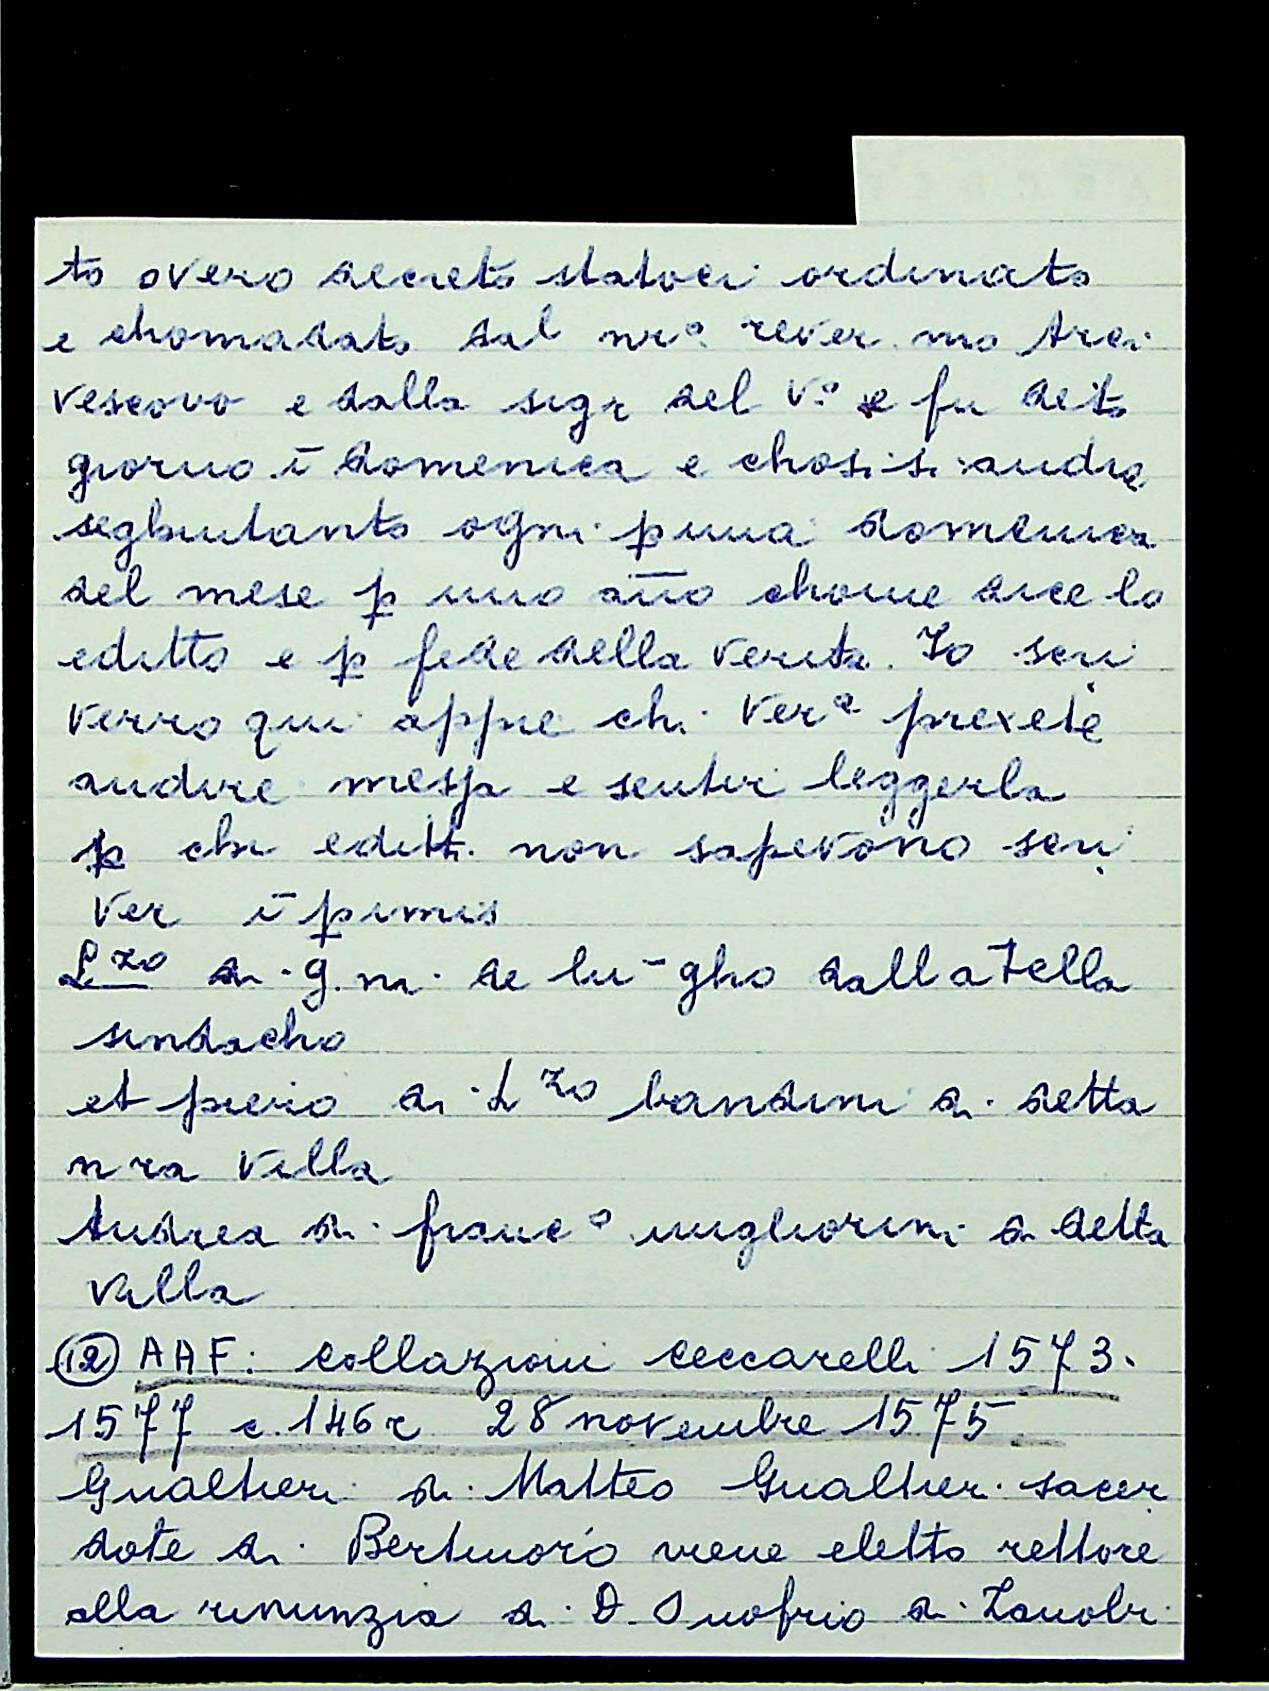 to overo decreto statoci ordinato
e chomadato dal nrº rever.mo Arci
vescovo e dalla sigr del vº e fu deto
giorno ī domenica e chosi si andra
seghuitanto ogni p̱ima domenica
del mese p̱ uno año chome dice lo
editto e p̱ fede della verita. Io scri
verro qui appie chi verª prexete
audire messa e sentir leggerla
p̱ che editti non sapevono scri
ver ī p̱imis
L.zo di g.ni de lu-gho dalla Tella
sindacho
et pierio di Lzo bandini di detta
nra villa
Andrea di francº migliorini di detta
villa
(12) AAF: Collazioni Ceccarelli 1573-
1577 c.146r 28 novembre 1575
Gualtieri di Matteo Gualtieri sacer
dote di Bertinoro viene eletto rettore
alla rinunzia di D. Onofrio di Zanobi